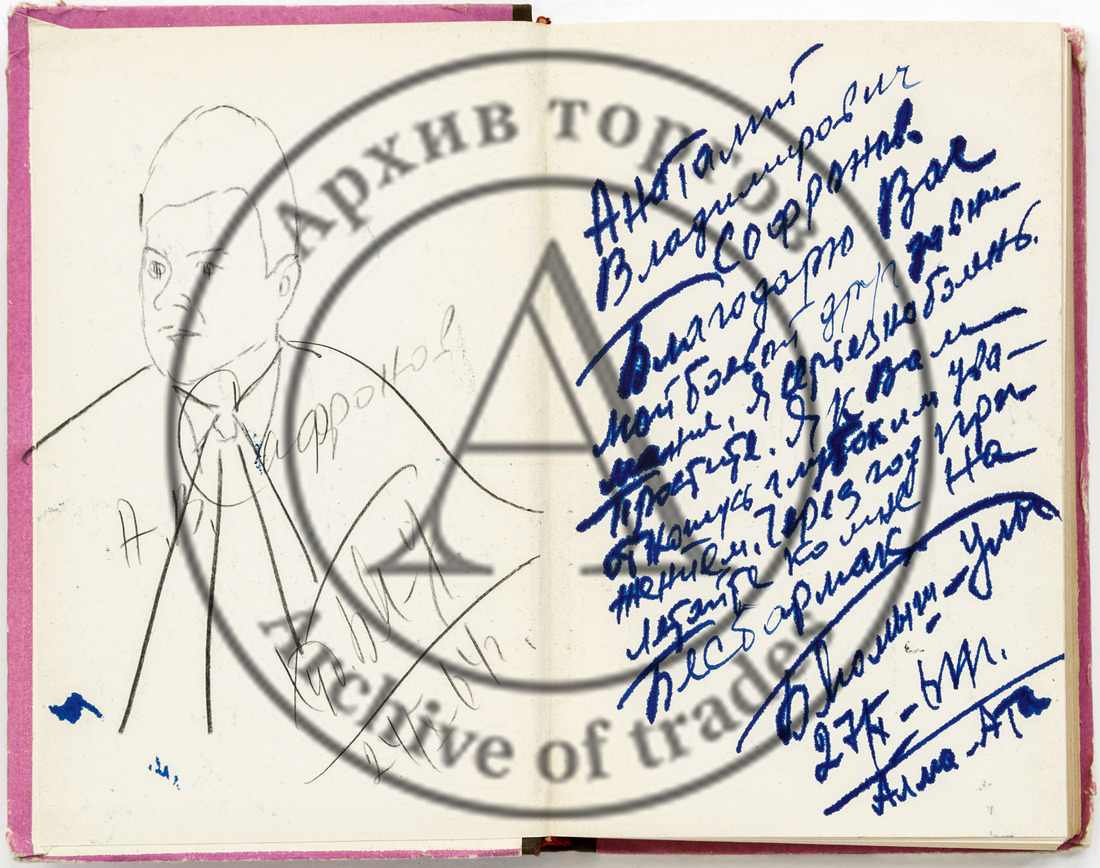 Архив торгов
Archive of trades
А. В. Сафронов
27/X-64г.
Анаталий
Владимирович
Софронов.
Благодарю Вас
мой болшой друг за вни-
мание, Я серьезно болень.
Простите. Я к Вам
отношусь глубоким ува-
жением. Через год при-
летайте ко мне На
Бесбармак
Уль
27/X-64г.
Алма-Ата